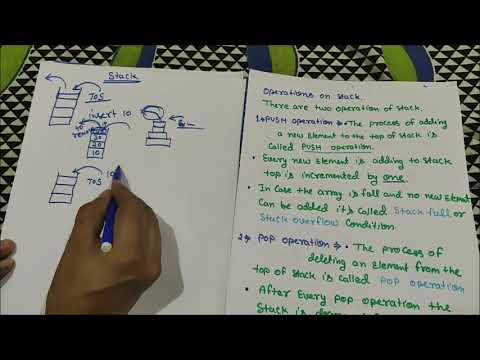 Stack
TOS
insert 10
30
20
10
TOS
10
Operations on stack.
There are two operation of stack.
1) PUSH operation → • The process of adding
a new Element to the top of stack is
Called PUSH operation.
• Every new Element is adding to stack
top is incremented by one.
• In case the array is full and no new Element
Can be added it's called Stack full or
Stack overflow Condition
2) POP operation → • The process of
deleting an Element from the
top of stack is called POP operation
• After Every pop operation the
Stack is